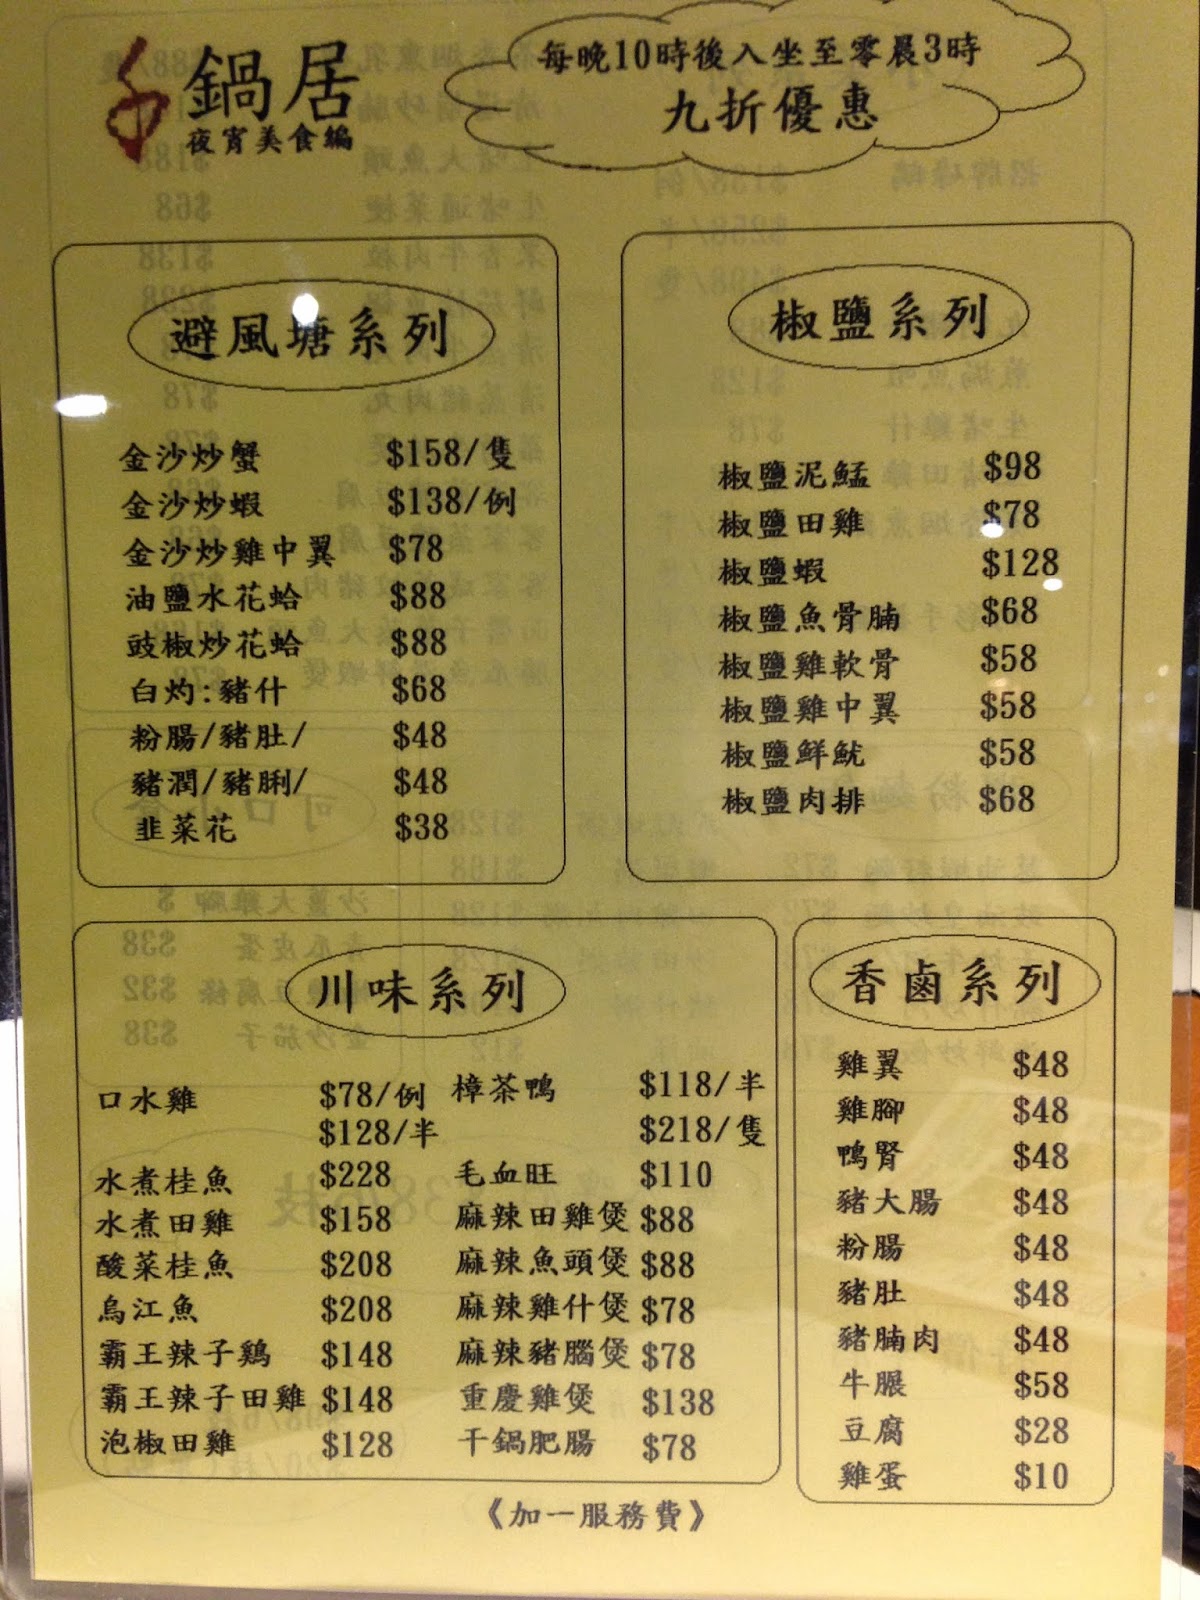 鍋居
夜宵美食編
每晚10時後入坐至零晨3時
九折優惠
避風塘系列
金沙炒蟹 $158/隻
金沙炒蝦 $138/例
金沙炒雞中翼 $78
油鹽水花蛤 $88
豉椒炒花蛤 $88
白灼:豬什 $68
粉腸/豬肚/ $48
豬潤/豬脷/ $48
韭菜花 $38
椒鹽系列
椒鹽泥鯭 $98
椒鹽田雞 $78
椒鹽蝦 $128
椒鹽魚骨腩 $68
椒鹽雞軟骨 $58
椒鹽雞中翼 $58
椒鹽鮮魷 $58
椒鹽肉排 $68
川味系列
口水雞 $78/例 樟茶鴨 $118/半
$128/半 $218/隻
水煮桂魚 $228 毛血旺 $110
水煮田雞 $158 麻辣田雞煲 $88
酸菜桂魚 $208 麻辣魚頭煲 $88
烏江魚 $208 麻辣雞什煲 $78
霸王辣子鷄 $148 麻辣豬腦煲 $78
霸王辣子田雞 $148 重慶雞煲 $138
泡椒田雞 $128 干鍋肥腸 $78
香鹵系列
雞翼 $48
雞腳 $48
鴨腎 $48
豬大腸 $48
粉腸 $48
豬肚 $48
豬腩肉 $48
牛𦟌 $58
豆腐 $28
雞蛋 $10
《加一服務費》